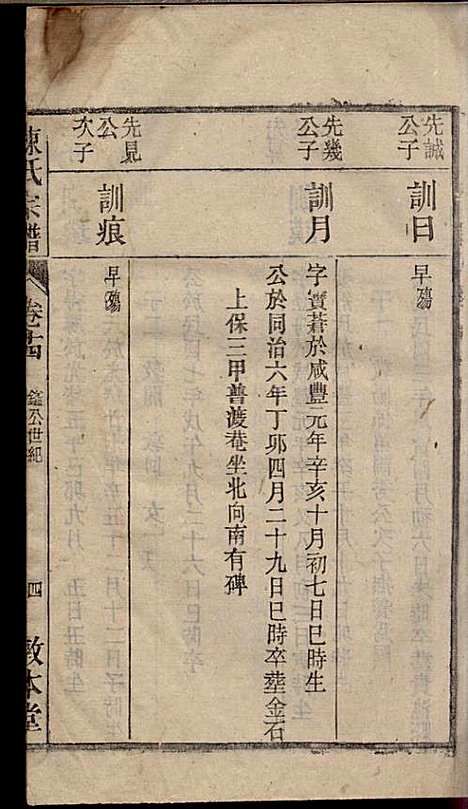 先誠
公子
訓日
早殤
先幾
公子
訓月
字實若於咸豐元年辛亥十月初七日巳時生
公於同治六年丁卯四月二十九日巳時卒塟金石
上保三甲普渡菴坐北向南有碑
先見
公
次子
訓痕
早殤
陳氏宗譜
卷之四
公世紀
四
敦本堂